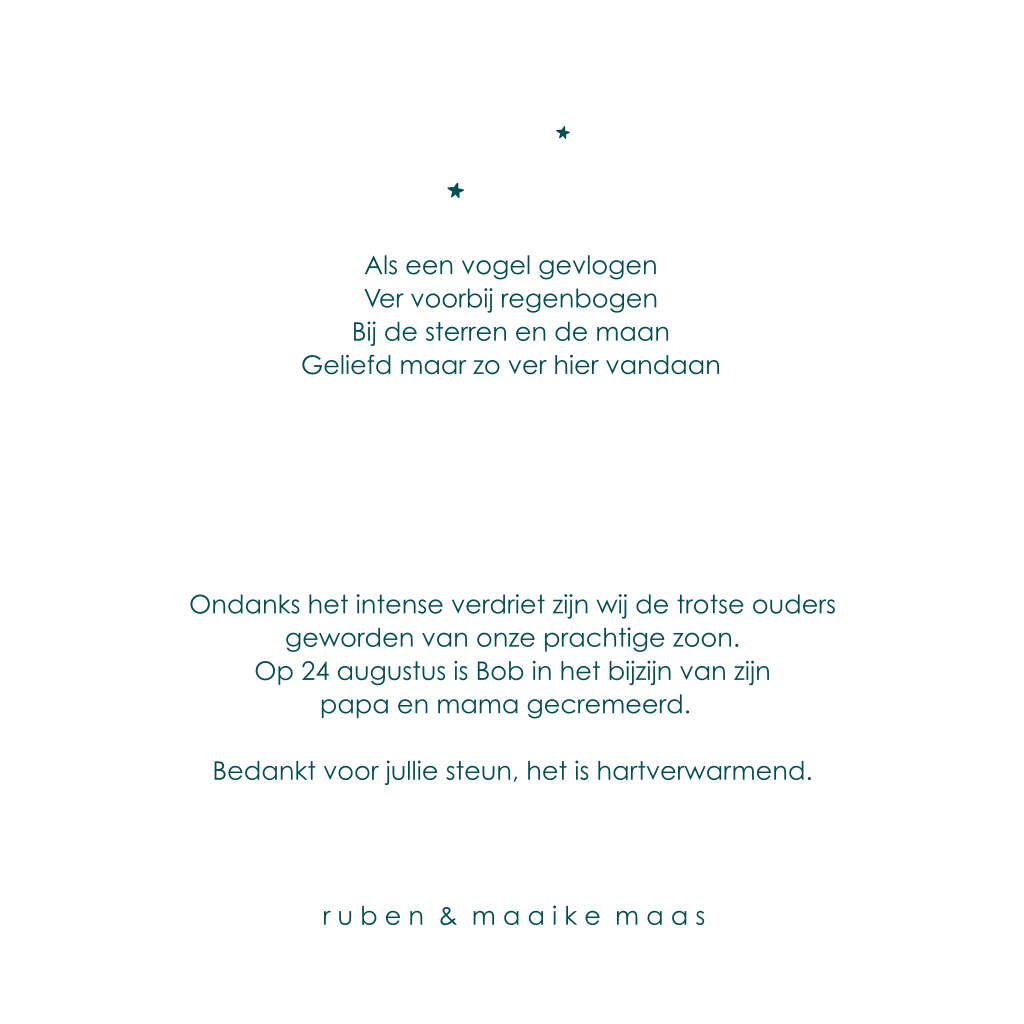 Als een vogel gevlogen
Ver voorbij regenbogen
Bij de sterren en de maan
Geliefd maar zo ver hier vandaan
Ondanks het intense verdriet zijn wij de trotse ouders
geworden van onze prachtige zoon.
Op 24 augustus is Bob in het bijzijn van zijn
papa en mama gecremeerd.
Bedankt voor jullie steun, het is hartverwarmend.
ruben & maaike maas